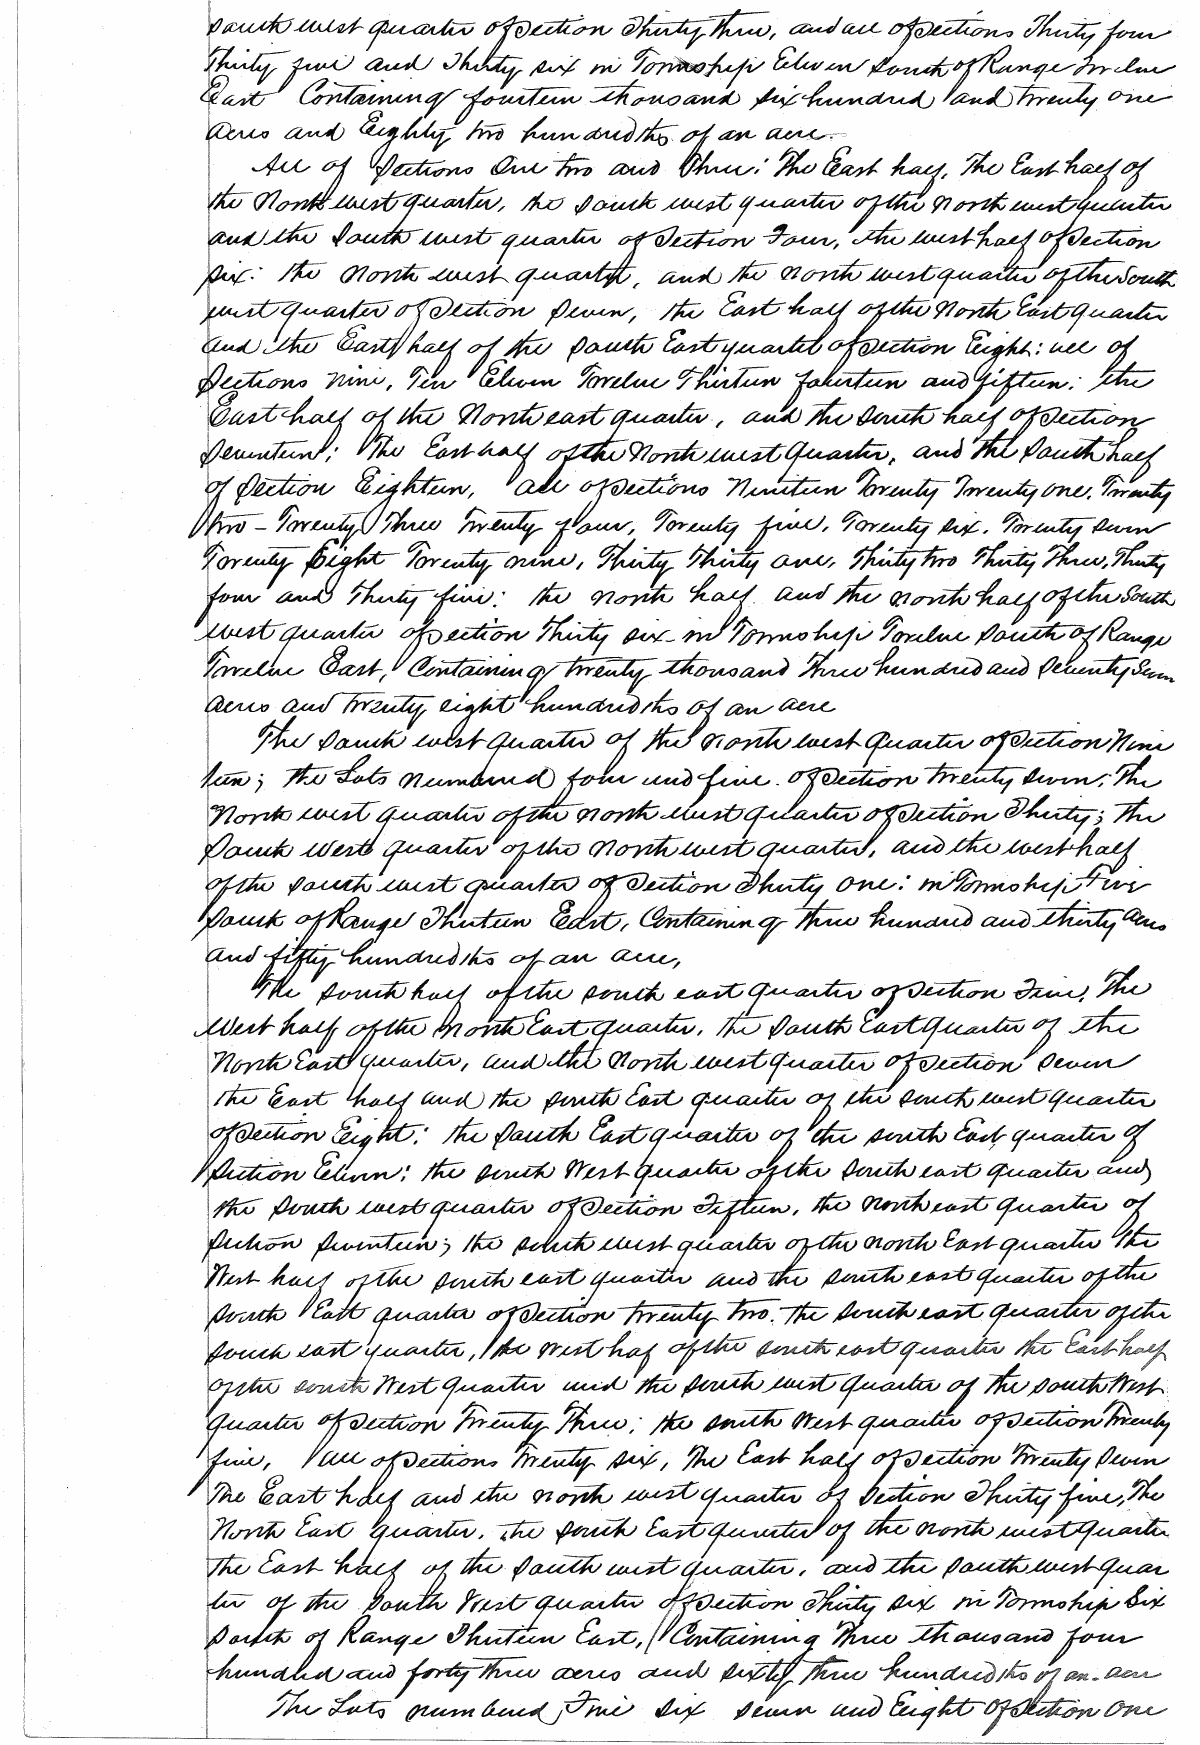 South west quarter of Section Thirty three, and all of Sections Thirty four
Thirty five and Thirty six in Township Eleven South of Range Twelve
East Containing fourteen thousand six hundred and twenty one
acres and Eighty two hundredths of an acre.
All of Sections One two and Three: The East half, The East half of
the North west quarter, the South west quarter of the North west quarter
and the South west quarter of Section Four, the west half of Section
Six: the North west quarter, and the North west quarter of the South
west quarter of Section Seven, the East half of the North East quarter
and the East half of the South East quarter of Section Eight: all of
Sections Nine, Ten Eleven Twelve Thirteen fourteen and fifteen: the
East half of the North east quarter, and the South half of Section
Seventeen; The East half of the North west Quarter, and the South half
of Section Eighteen, all of Sections Nineteen Twenty Twenty one, Twenty
two - Twenty Three Twenty four, Twenty five, Twenty six, Twenty seven
Twenty Eight Twenty nine, Thirty Thirty one, Thirty two Thirty Three, Thirty
four and Thirty five: the North half and the North half of the South
west quarter of Section Thirty six in Township Twelve South of Range
Twelve East, Containing twenty thousand Three hundred and Seventy Seven
acres and twenty eight hundredths of an acre
The South west quarter of the North west Quarter of Section Nine
teen; the Lots Numbered four and five of Section twenty seven; The
North west quarter of the North west quarter of Section Thirty; the
South West quarter of the North west quarter, and the west half
of the South west quarter of Section Thirty One: in Township Five
South of Range Thirteen East, Containing three hundred and thirty acres
and fifty hundredths of an acre,
The South half of the South east quarter of Section Five, The
West half of the North East quarter, the South East Quarter of the
North East quarter, and the North west quarter of Section Seven
the East half and the South East quarter of the South west quarter
of Section Eight: the South East quarter of the South East quarter of
Section Eleven: the South West quarter of the South east quarter and
the South west quarter of Section Fifteen, the North east quarter of
Section Seventeen; the South west quarter of the North East quarter the
West half of the South east quarter and the South east quarter of the
South East quarter of Section twenty two. the South east quarter of the
South east quarter, the West haf of the South east quarter the East half
of the South West quarter and the South west quarter of the South West
quarter of Section Twenty Three: the South West quarter of Section Twenty
five, all of Sections Twenty six, The East half of Section Twenty Seven
The East half and the North west quarter of Section Thirty five, The
North East quarter, the South East quarter of the North west Quarter
the East half of the South west quarter, and the South west quar
ter of the South West quarter of Section Thirty six in Township Six
South of Range Thirteen East, Containing Three thousand four
hundred and forty three acres and sixty three hundredths of an acre
The Lots numbered Five Six Seven and Eight Of Section One